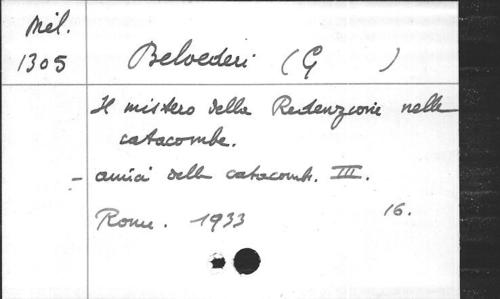 Mél.
1305
Belvederi (G )
Il mistero della Redenzione nelle
catacombe.
- amici delle catacomb. III.
Rome. 1933 16.